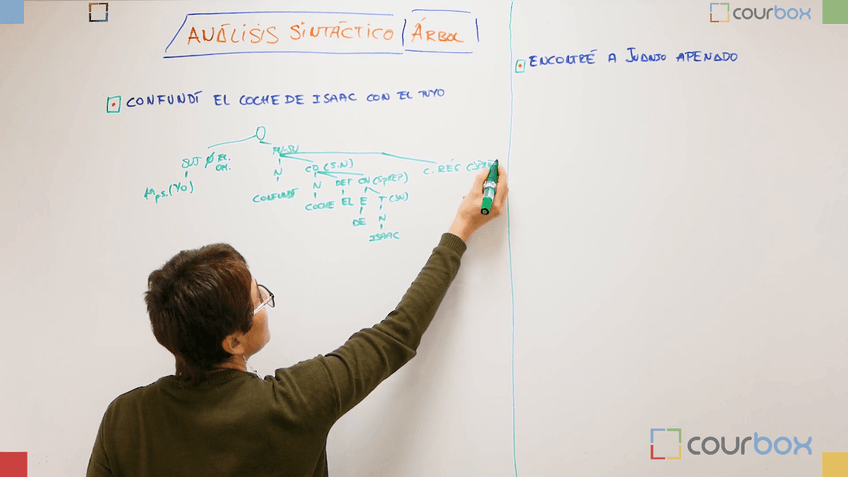 ANÁLISIS SINTÁCTICO ÁRBOL
courbox
CONFUNDÍ EL COCHE DE ISAAC CON EL TUYO
ENCONTRÉ A JUANJO APENADO
O
SUJ Ø EL.
OM.
(YO)
N
CONFUNDÍ
CD (S.N)
N DET CN (SPREP)
COCHE EL E T (SN)
DE N
ISAAC
C. RÉG
courbox